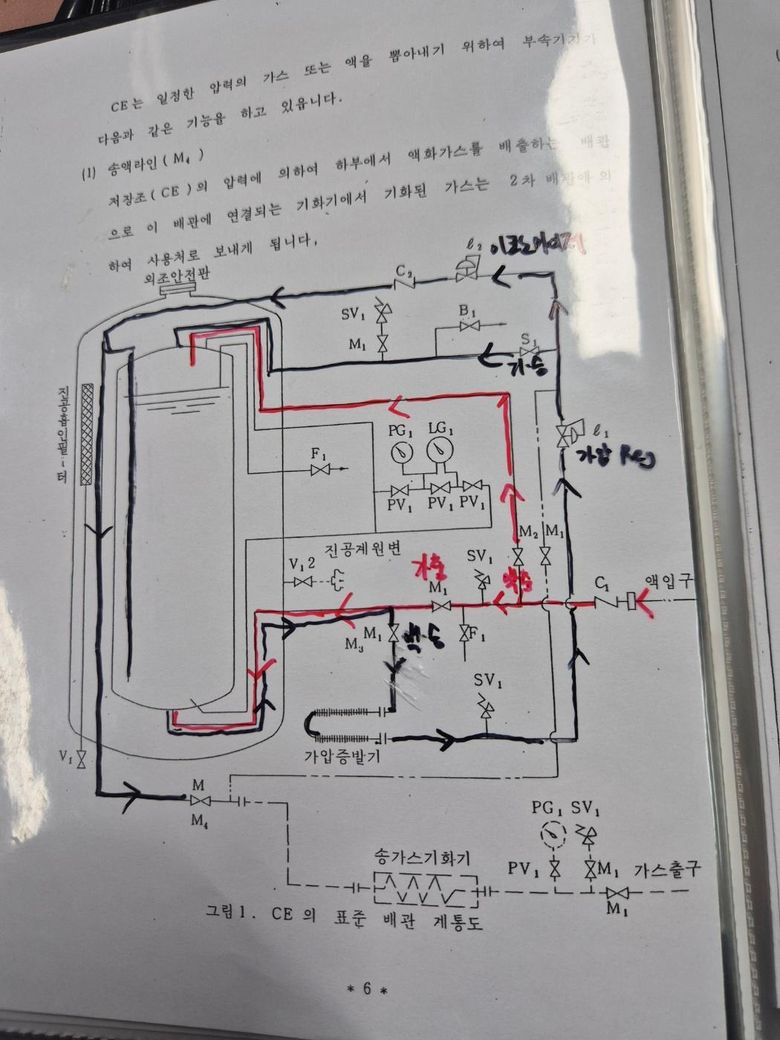 CE는 일정한 압력의 가스 또는 액을 뽑아내기 위하여 부속기기가
다음과 같은 기능을 하고 있읍니다.
(1) 송액라인(M₄)
저장조(CE)의 압력에 의하여 하부에서 액화가스를 배출하는 배관
으로 이 배관에 연결되는 기화기에서 기화된 가스는 2차 배관에 의
하여 사용처로 보내게 됩니다.
외조안전판
C₂
ℓ₂
SV₁
B₁
M₁
S₁
진공흡인필-터
PG₁
LG₁
ℓ₁
가압 Reg
F₁
PV₁
PV₁
PV₁
진공계원변
M₂
M₁
V₁2
SV₁
M₁
C₁
액입구
M₃
M₁
F₁
SV₁
가압증발기
V₁
M
M₄
PG₁
SV₁
송가스기화기
PV₁
M₁
가스출구
M₁
그림1. CE의 표준 배관 계통도
* 6 *